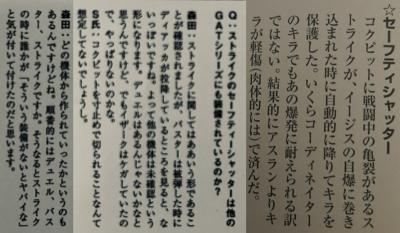 ☆セーフティシャッター
コクピットに戦闘中の亀裂があるス
トライクが、イージスの自爆に巻き
込まれた時に自動的に降りてキラを
保護した。いくらコーディネイター
のキラでもあの爆発に耐えられる訳
ではない。結果的にアスランよりキ
ラが軽傷(肉体的には)で済んだ。
Q：ストライクのセーフティシャッターは他の
GATシリーズにも装備されているのか？
森田：ストライクに関してはああいう形であるこ
とが確認されましたが、バスターは被弾した時に
ディアッカが投降しているところを見ると、な
いっぽいですね。よって他の機体は未確認という
形になります。デュエルはあるんじゃないかなと
思うんですけど、でもイザークはケガしていたの
で、やっぱりないのかな。
S氏：コクピットを寸止めで切られることなんて
想定してないでしょうし。
森田：どの機体から作られていったかというのも
あるんですけどね。順番的にはデュエル、バス
ター、ストライクですか。そうなるとストライク
の時に誰かが「そういう装備がないとヤバイな」
と気が付いて付けたのだと思います。